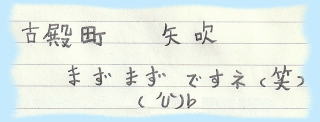 古殿町　矢吹
まずまず ですネ（笑）
( 'ი')b